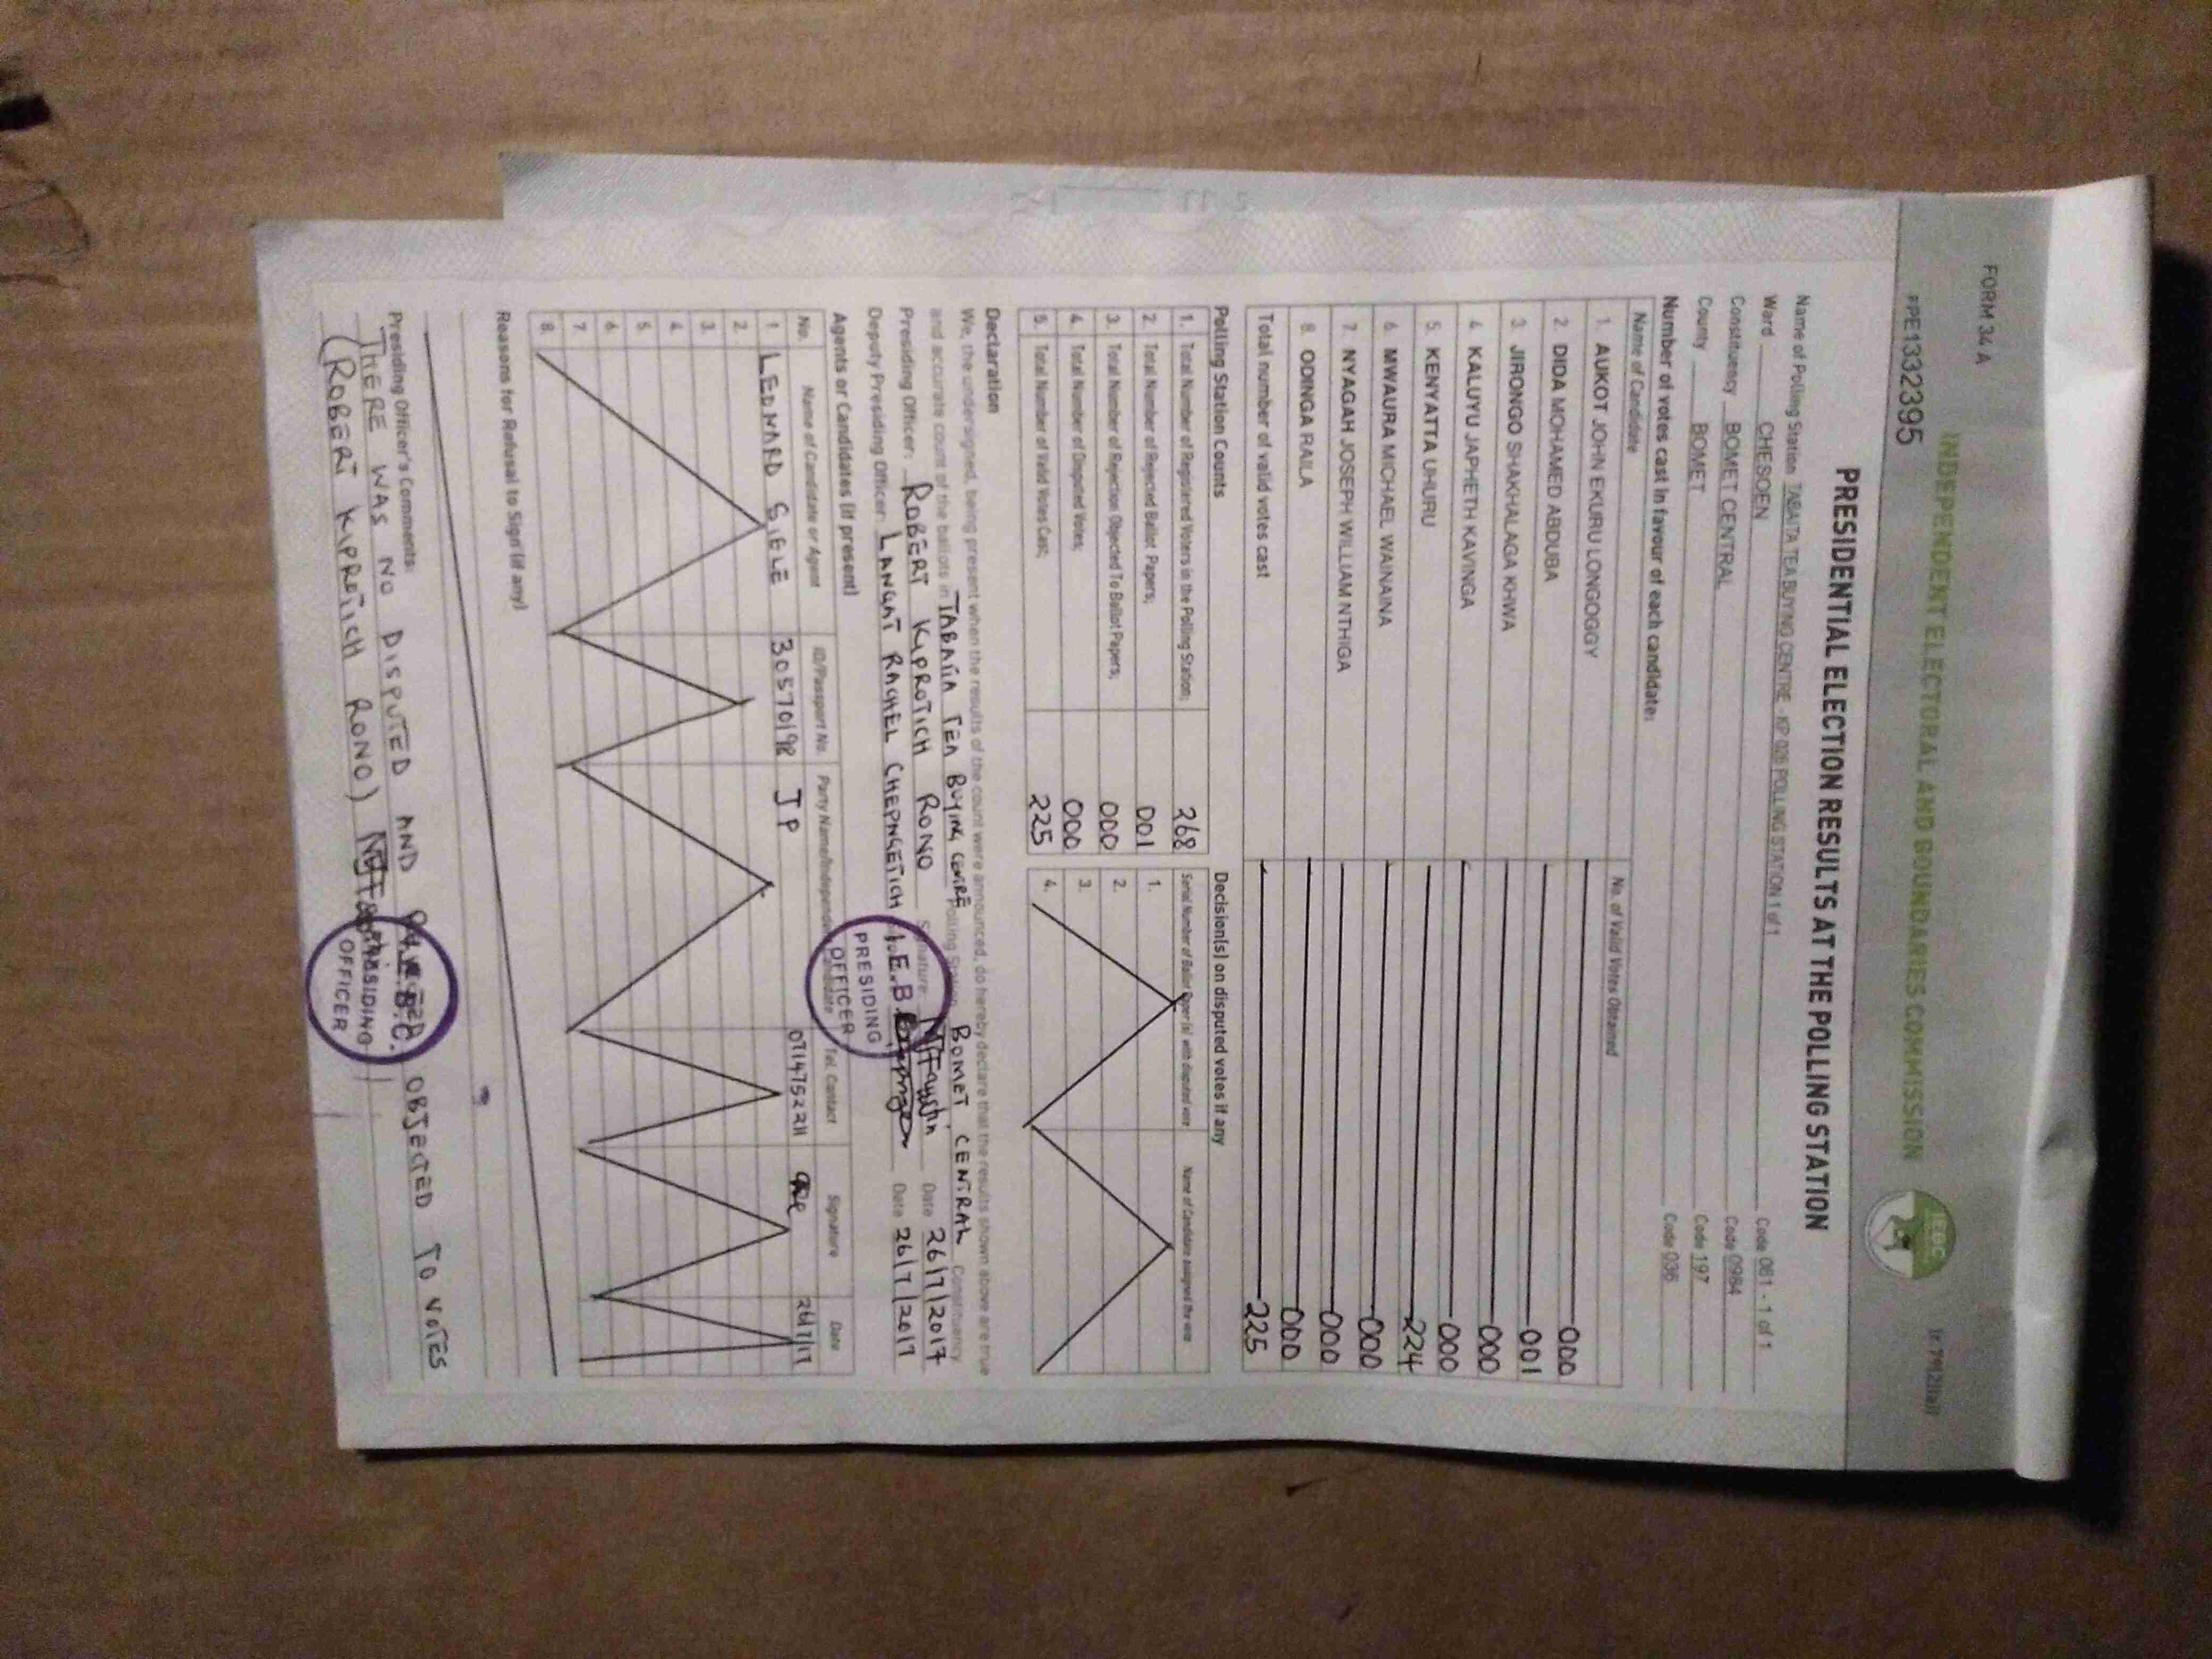 FORM 34 A
INDEPENDENT ELECTORAL AND BOUNDARIES COMMISSION
IEBC
PPE1332395
PRESIDENTIAL ELECTION RESULTS AT THE POLLING STATION
Name of Polling Station TABAITA TEA BUYING CENTRE - KP 026 POLLING STATION 1 of 1 Code 061 - 1 of 1
Ward CHESOEN Code 0984
Constituency BOMET CENTRAL Code 197
County BOMET Code 036
Number of votes cast in favour of each candidate:
Name of Candidate No. of Valid Votes Obtained
1. AUKOT JOHN EKURU LONGOGGY 000
2. DIDA MOHAMED ABDUBA 001
3. JIRONGO SHAKHALAGA KHWA 000
4. KALUYU JAPHETH KAVINGA 000
5. KENYATTA UHURU 224
6. MWAURA MICHAEL WAINAINA 000
7. NYAGAH JOSEPH WILLIAM NTHIGA 000
8. ODINGA RAILA 000
Total number of valid votes cast 225
Polling Station Counts
1. Total Number of Registered Voters in the Polling Station; 268
2. Total Number of Rejected Ballot Papers; 001
3. Total Number of Rejection Objected To Ballot Papers; 000
4. Total Number of Disputed Votes; 000
5. Total Number of Valid Votes Cast; 225
Decision(s) on disputed votes if any
Serial Number of Ballot Paper (s) with disputed vote Name of Candidate assigned the vote
1.
2.
3.
4.
Declaration
We, the undersigned, being present when the results of the count were announced, do hereby declare that the results shown above are true
and accurate count of the ballots in TABAITA TEA BUYING CENTRE Polling Station BOMET CENTRAL Constituency
Presiding Officer: ROBERT KIPROTICH RONO Signature: Date 26/7/2017
Deputy Presiding Officer: LANGAT RACHEL CHEPNGETICH Date 26/7/2017
I.E.B.
PRESIDING
OFFICER
Agents or Candidates (if present)
No. Name of Candidate or Agent ID/Passport No. Party Name/Independent Candidate Tel. Contact Signature Date
1 LEONARD SIELE 30570198 JP 0714752211 26/7/17
2.
3.
4.
5.
6.
7.
8.
Reasons for Refusal to Sign (if any)
Presiding Officer's Comments:
THERE WAS NO DISPUTED AND OBJECTED TO VOTES
(ROBERT KIPROTICH RONO)
I.E.B.C.
PRESIDING
OFFICER